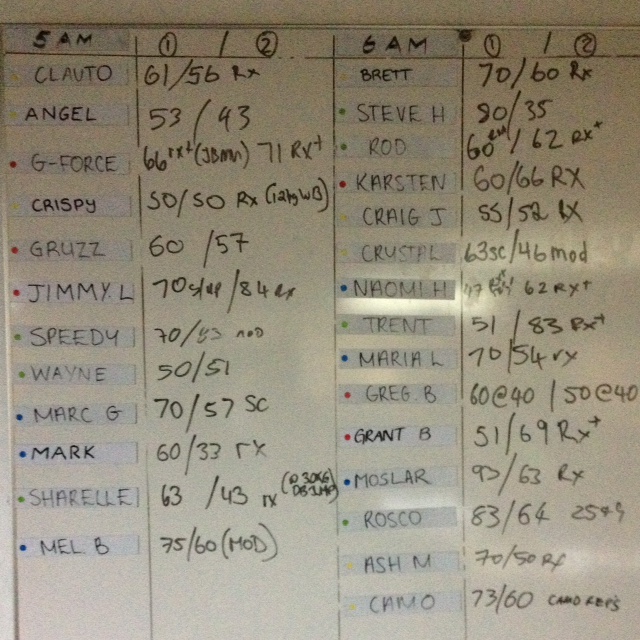 5 AM ① / ②
CLAUTO 61/56 Rx
ANGEL 53 / 43
G-FORCE 66 rx+ 71 Rx+
CRISPY 50/50 Rx (12kg WB)
GRUZZ 60 / 57
JIMMY. L 70 / 84 rx
SPEEDY 70/ mod
WAYNE 50/51
MARC G 70/57 SC
MARK 60/33 rx
SHARELLE 63 / 43 rx
MEL. B 75/60 (MOD)
6 AM ① / ②
BRETT 70/60 Rx
STEVE H /35
ROD 60 / 62 Rx+
KARSTEN 60/66 RX
CRAIG J 55/52 RX
CRYSTAL 63sc/46mod
NAOMI H 62 Rx+
TRENT 51 / 83 Rx+
MARIA L 70/54 rx
GREG. B 60@40 / 50@40
GRANT B 51/69 Rx+
MOSLAR 93/63 Rx
ROSCO 83/64
ASH M 70/50 Rx
CAMO 73/60 CAMO REPS